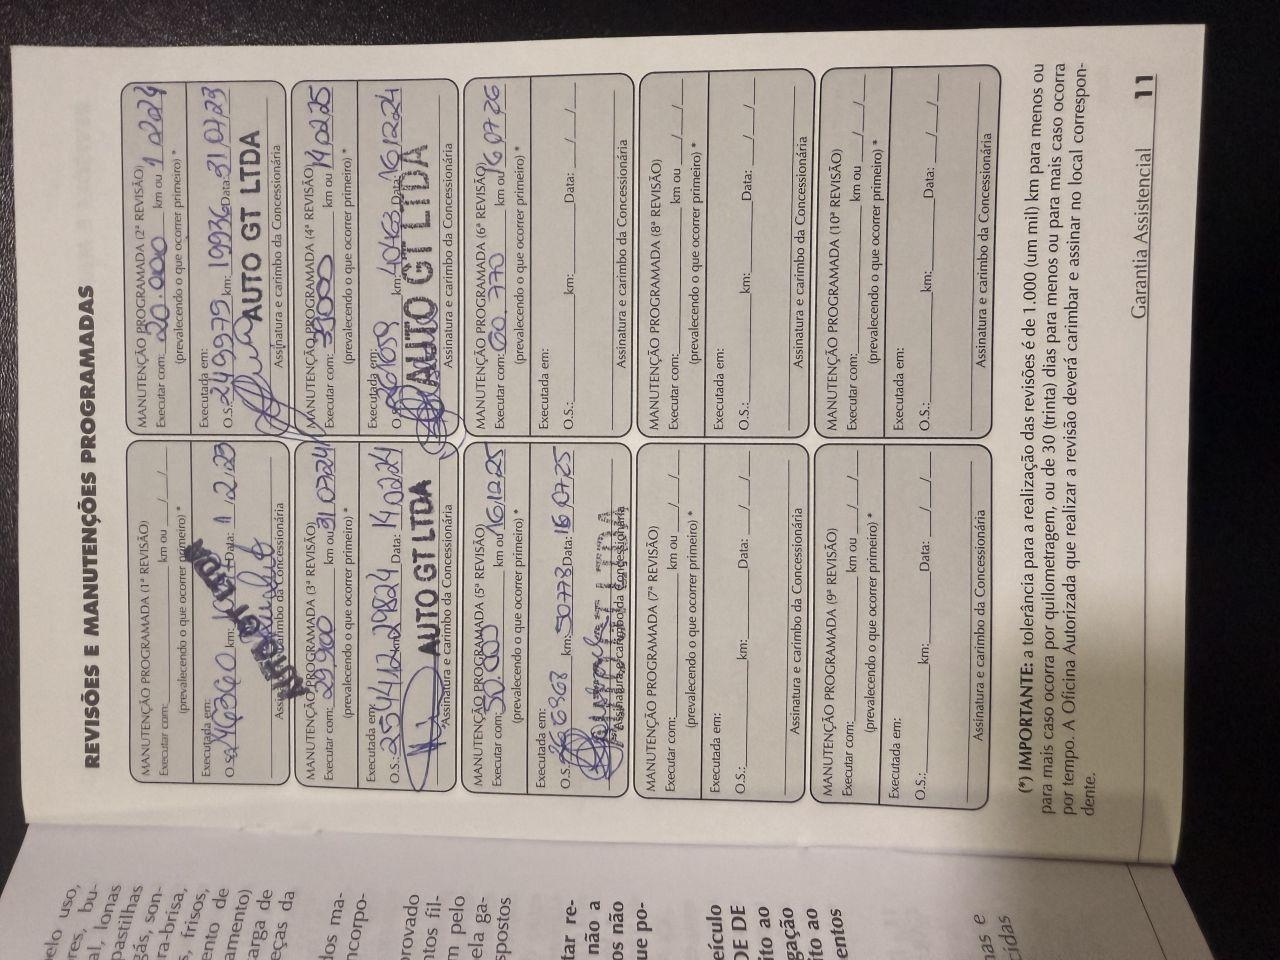 REVISÕES E MANUTENÇÕES PROGRAMADAS
MANUTENÇÃO PROGRAMADA (1ª REVISÃO)
Executar com:______ km ou __/__/__
(prevalecendo o que ocorrer primeiro) *
Executada em:
O.S.: 246360 km: Data: 1 2 23
AUTO GT LTDA
Assinatura e carimbo da Concessionária
MANUTENÇÃO PROGRAMADA (2ª REVISÃO)
Executar com: 20.000 km ou 1 02 24
(prevalecendo o que ocorrer primeiro) *
Executada em:
O.S.: 249979 km: 19936 Data: 31 07 23
AUTO GT LTDA
Assinatura e carimbo da Concessionária
MANUTENÇÃO PROGRAMADA (3ª REVISÃO)
Executar com: 29.900 km ou 31 07 24
(prevalecendo o que ocorrer primeiro) *
Executada em:
O.S.: 254412 km: 29824 Data: 14 02 24
AUTO GT LTDA
Assinatura e carimbo da Concessionária
MANUTENÇÃO PROGRAMADA (4ª REVISÃO)
Executar com: 39000 km ou 14 02 25
(prevalecendo o que ocorrer primeiro) *
Executada em:
O.S.: 261659 km: 40463 Data: 16 12 24
AUTO GT LTDA
Assinatura e carimbo da Concessionária
MANUTENÇÃO PROGRAMADA (5ª REVISÃO)
Executar com: km ou 16 12 25
(prevalecendo o que ocorrer primeiro) *
Executada em:
O.S.: 266968 km: 50773 Data: 16 07 25
Assinatura e carimbo da Concessionária
MANUTENÇÃO PROGRAMADA (6ª REVISÃO)
Executar com: 60.770 km ou 16 07 26
(prevalecendo o que ocorrer primeiro) *
Executada em:
O.S.:______km:______Data: __/__/__
Assinatura e carimbo da Concessionária
MANUTENÇÃO PROGRAMADA (7ª REVISÃO)
Executar com:______ km ou __/__/__
(prevalecendo o que ocorrer primeiro) *
Executada em:
O.S.:______km:______Data: __/__/__
Assinatura e carimbo da Concessionária
MANUTENÇÃO PROGRAMADA (8ª REVISÃO)
Executar com:______ km ou __/__/__
(prevalecendo o que ocorrer primeiro) *
Executada em:
O.S.:______km:______Data: __/__/__
Assinatura e carimbo da Concessionária
MANUTENÇÃO PROGRAMADA (9ª REVISÃO)
Executar com:______ km ou __/__/__
(prevalecendo o que ocorrer primeiro) *
Executada em:
O.S.:______km:______Data: __/__/__
Assinatura e carimbo da Concessionária
MANUTENÇÃO PROGRAMADA (10ª REVISÃO)
Executar com:______ km ou __/__/__
(prevalecendo o que ocorrer primeiro) *
Executada em:
O.S.:______km:______Data: __/__/__
Assinatura e carimbo da Concessionária
(*) IMPORTANTE: a tolerância para a realização das revisões é de 1.000 (um mil) km para menos ou
para mais caso ocorra por quilometragem, ou de 30 (trinta) dias para menos ou para mais caso ocorra
por tempo. A Oficina Autorizada que realizar a revisão deverá carimbar e assinar no local correspon-
dente.
Garantia Assistencial 11